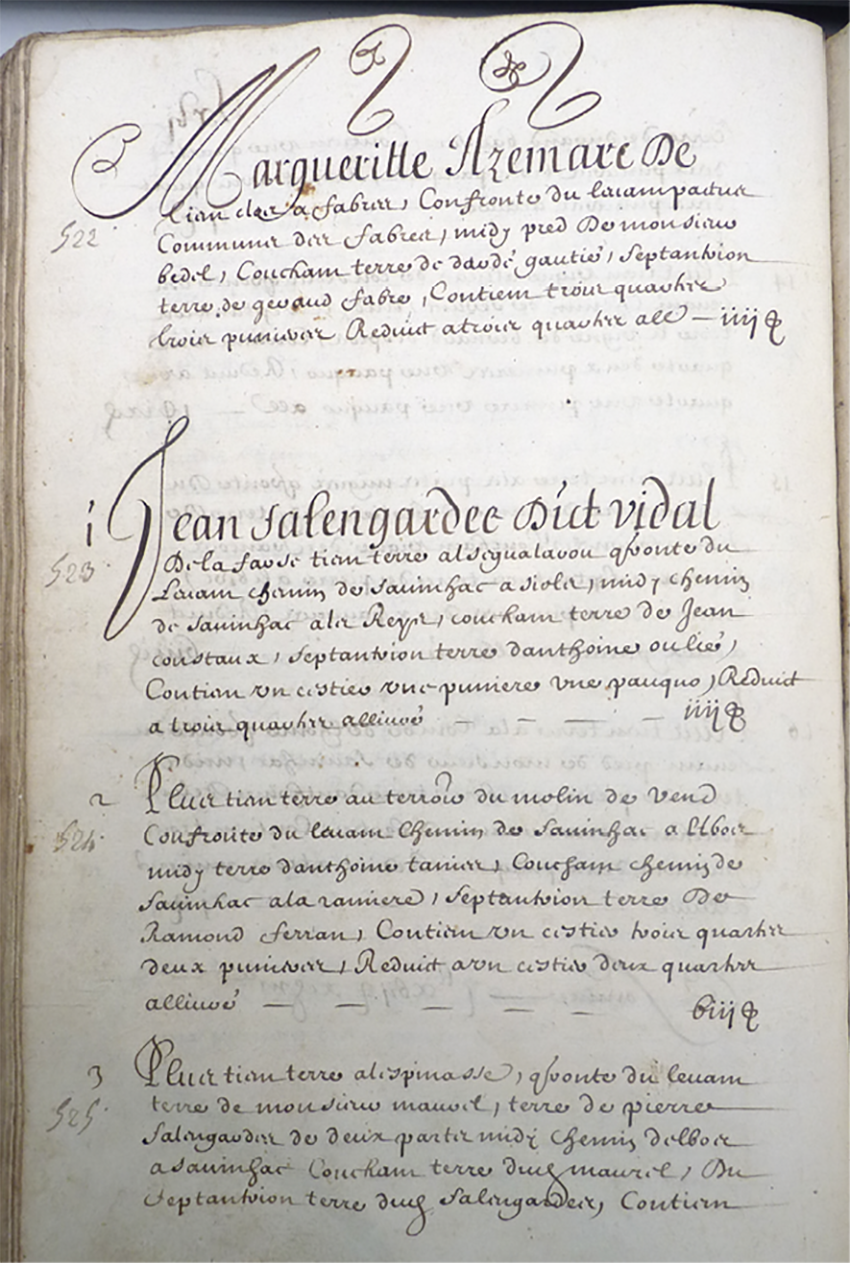 Margueritte Azemare De
tien clos a fabres, Confronte du levam pactus
522
Communs des fabres, midy pred De monsieur
bedel, Coucham terre de daudé gautié, septantrion
terre de geraud fabre, Contiem trois quartes
trois punieres Reduict a trois quartes all – iiij
1 Jean Salengardes Dict vidal
De la fasse tien terre al segualavou qfronte du
523
Levam chemin de Savinhac a siols, midy chemin
de Savinhac a les Reys, coucham terre de Jean
coustaux, septantrion terre danthoine oulié,
Contien un cestier une puniere une pauquo, Reduict
a trois quartes allivré — — — — iiij
2 Plus tien terre au terroir du molin de vend
524
Confronte du levam Chemin de Savinhac a Elbos
midy terre danthoine tanier, Coucham chemin de
Savinhac a la raniere, Septantrion terre De
Ramond ferran, Contiem un cestier trois quartes
deux punieres, Reduict a un cestier deux quartes
allivré — — — — — biij
3 Plus tien terre a lespinasse, qfronte du levam
525
terre de monsieur maurel, terre de pierre
Salengardes de deux partz midy Chemin delbos
a Savinhac Coucham terre dud maurel, Du
Septantrion terre dud Salengardes, Contiem